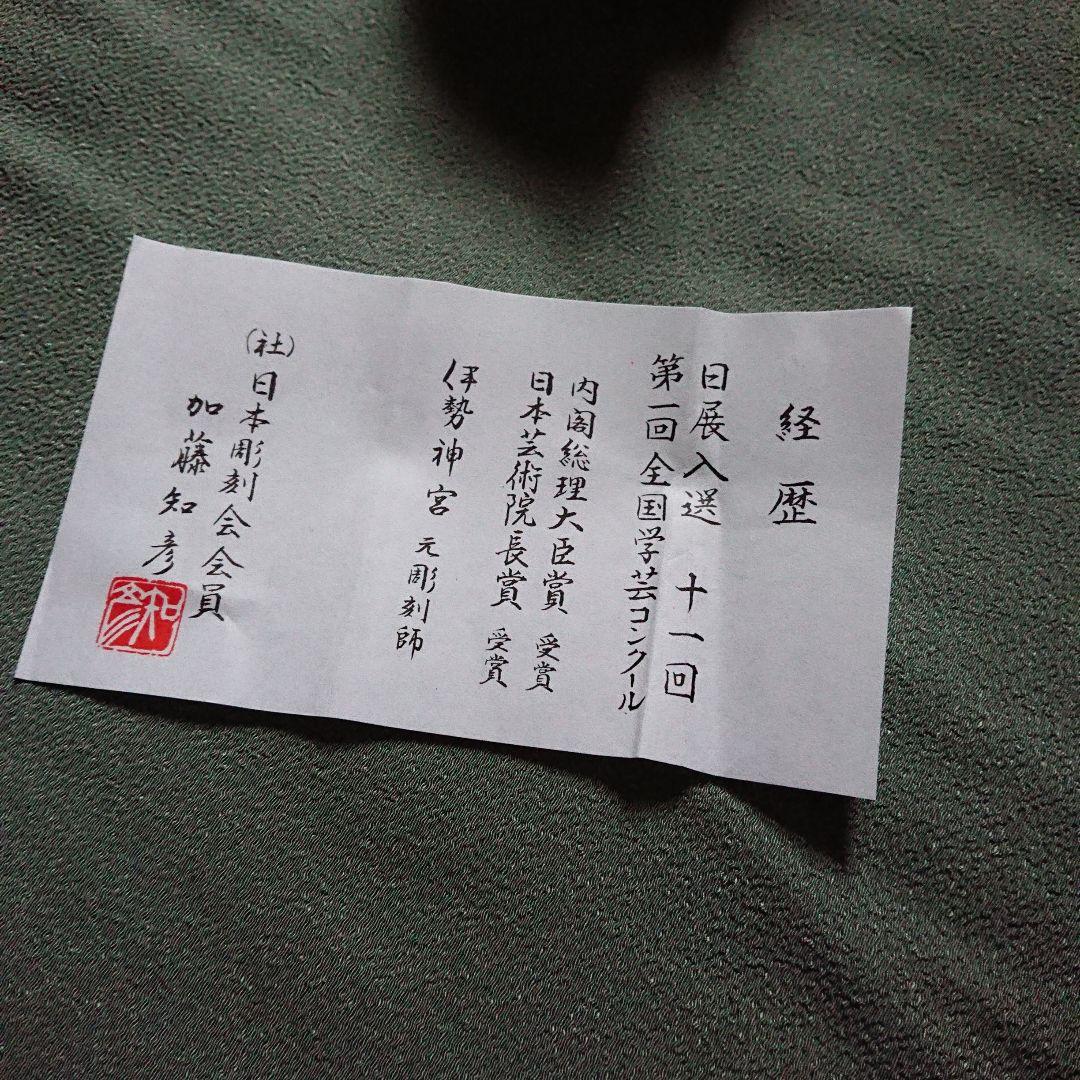 経歴
日展入選 十一回
第一回全国学芸コンクール
内閣総理大臣賞 受賞
日本芸術院長賞 受賞
伊勢神宮 元彫刻師
(社)日本彫刻会会員
加藤知彦
知彦